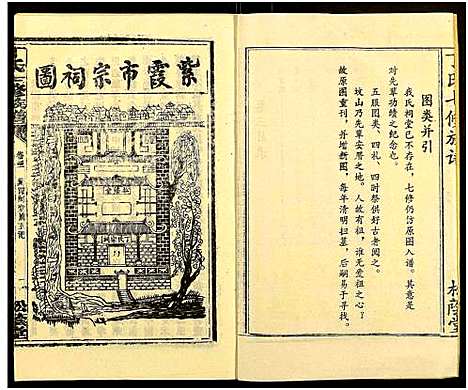 丁氏七修族谱
图类并引
我氏祠堂已不存在，七修仍仿原图入谱。其意是
对先辈功绩之纪念也。
五服图类、四礼、四时祭供好古者阅之。
坟山乃先辈安厝之地。人故有祖，谁无爱祖之心？
故原图重刊，并增新图，每年清明扫墓，后嗣易于寻找。
松荫堂
紫霞市宗祠圖
松蔭堂